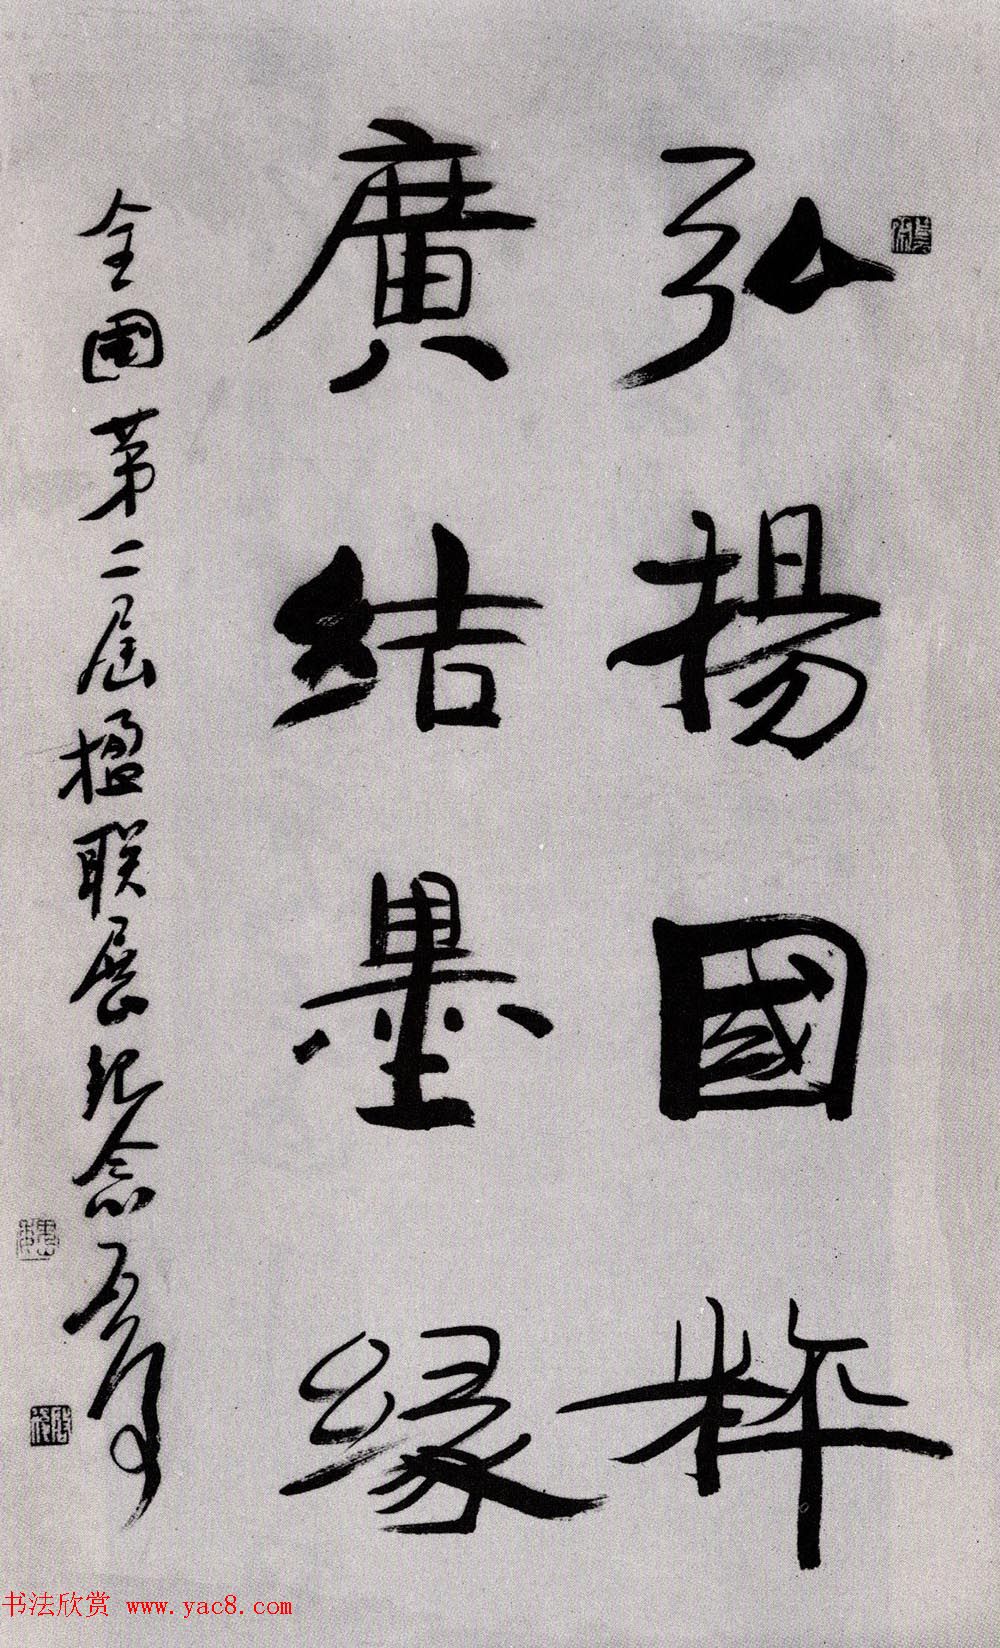 弘揚國粹
廣結墨緣
全國第二届楹联展紀念
书法欣赏 www.yac8.com